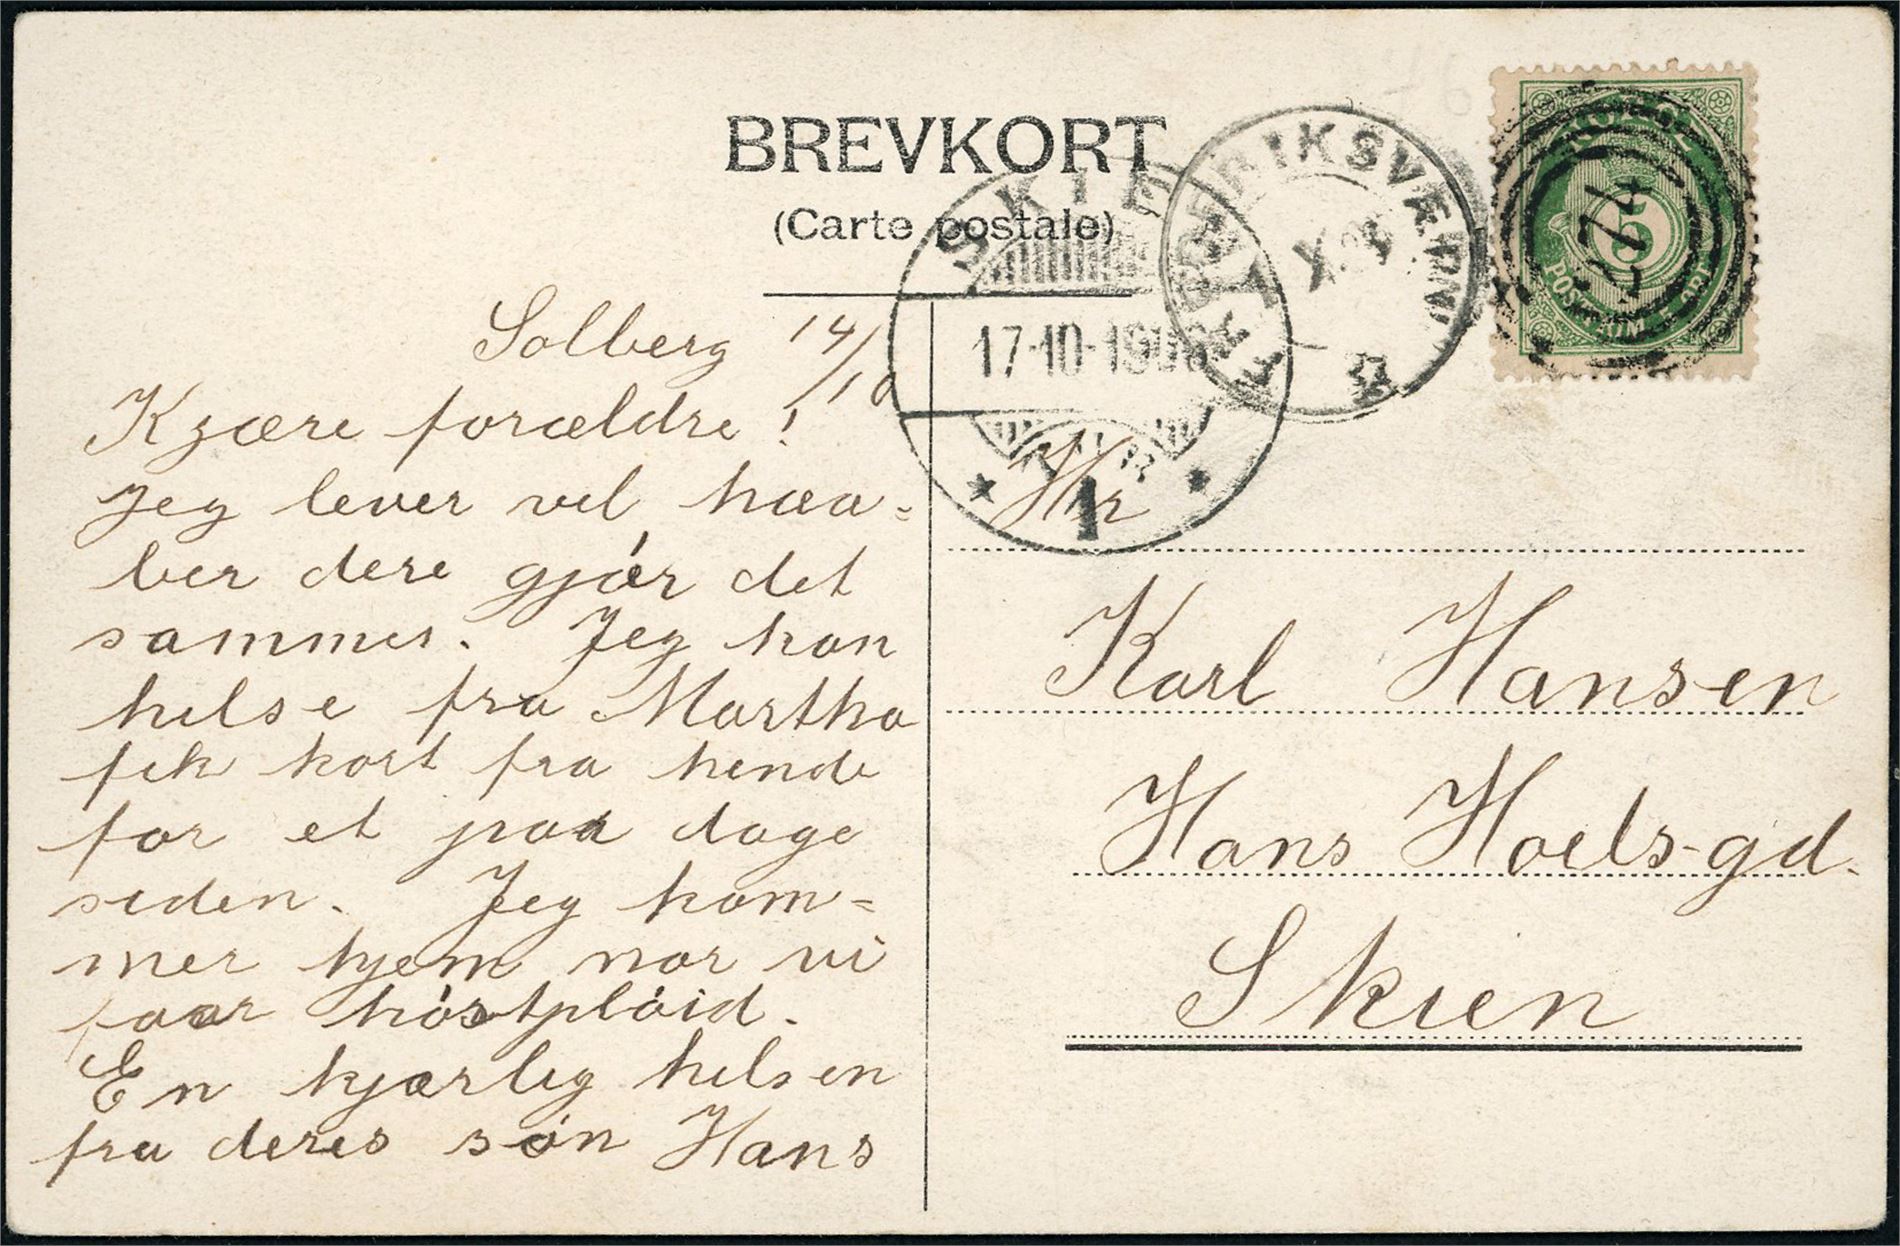 BREVKORT
(Carte postale)
SKIEN
17-10-1908
1
FREDRIKSVÆRN
X
NORGE
5
POSTFRIM
ØRE
274
Solberg 14/10
Kjære forældre!
Jeg lever vel haa=
ber dere gjór det
sammer. Jeg kan
helse fra Martha
fek kort fra hende
for et paar dage
siden. Jeg kom=
mer hjem nar vi
faar hóstplóid.
En kjærlig helsen
fra deres són Hans
Hr
Karl Hansen
Hans Hoels-gd.
Skien